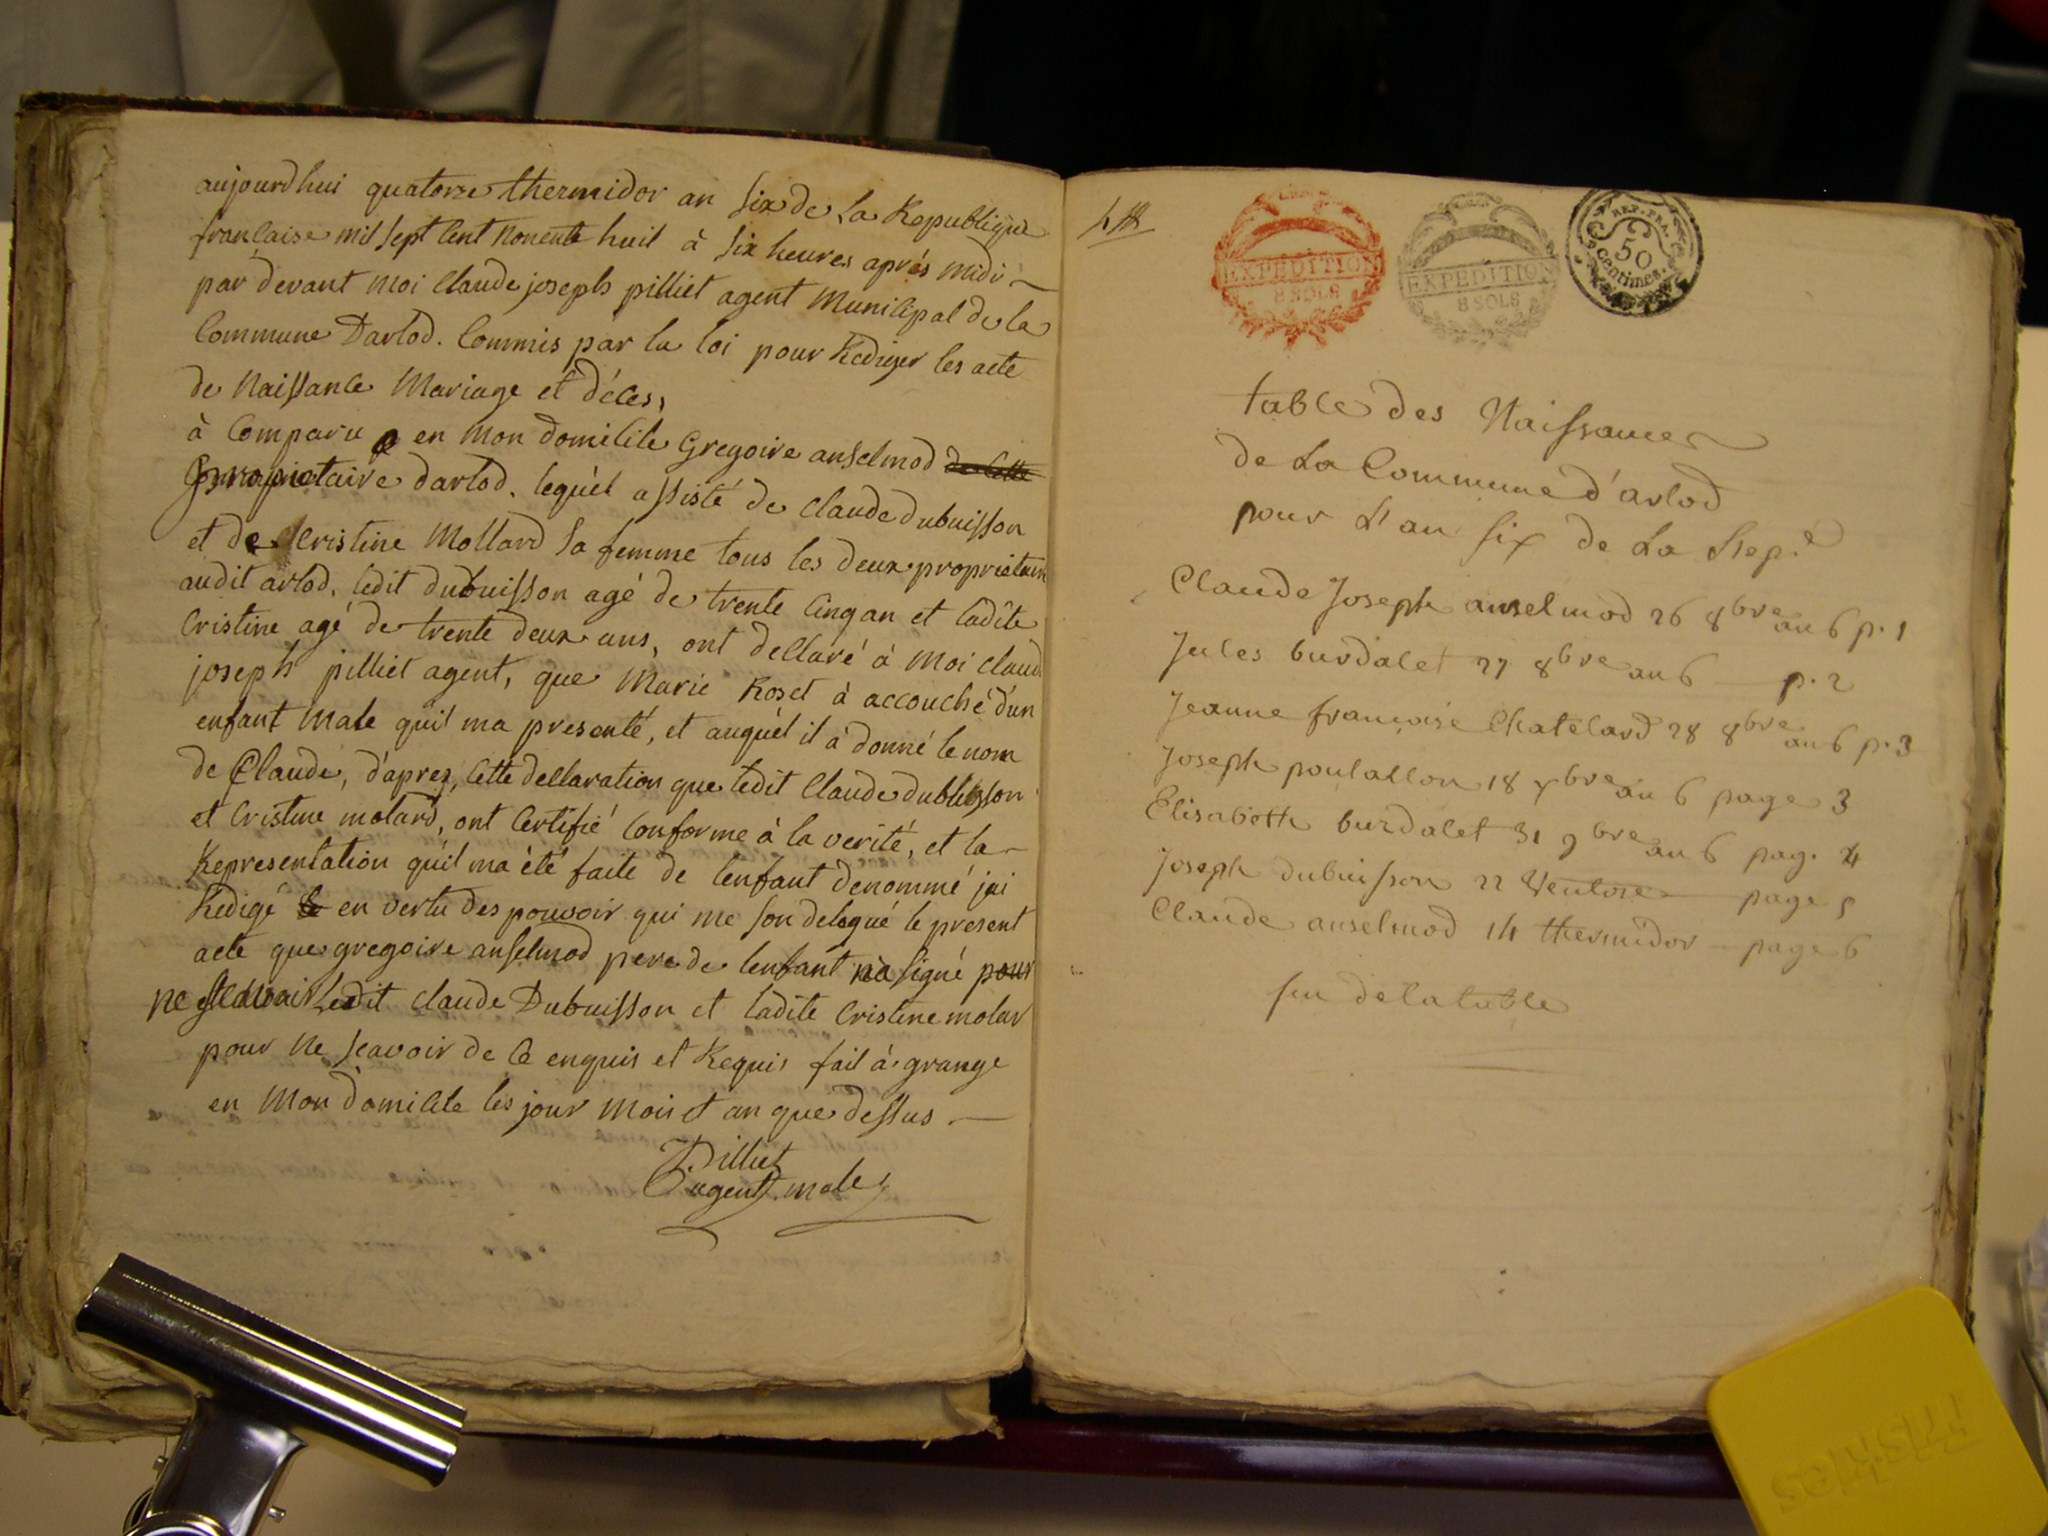 aujourdhui quatorze thermidor an six de la Republique
francaise mil sept cent nonente huit à six heures aprés midi
par devant moi claude joseph pilliet agent municipal de la
Commune Darlod. Commis par la loi pour Rediger les acte
de Naissance Mariage et déces,
à Comparu en mon domicile Gregoire anselmod de cette
proprietaire darlod. lequel assisté de claude dubuisson
et de cristine Mollard sa femme tous les deux proprietaire
audit arlod, ledit dubuisson agé de trente cinq an et ladite
Cristine agé de trente deux ans, ont declaré à moi claude
joseph pilliet agent, que Marie Roset à accouché d'un
enfant Male quil ma presenté, et auquel il à donné le nom
de Claude, d'apres, cette declaration que ledit Claude dubuisson
et Cristine molard, ont Certifié conforme à la verité, et la
Representation quil ma été faite de lenfant denommé jai
Redigé en vertu des pouvoir qui me son delegué le present
acte que gregoire anselmod pere de lenfant na signé pour
ne scavoir Ledit claude Dubuisson et ladite Cristine molar
pour ne scavoir de ce enquis et Requis fait à grange
en Mon domicile les jour mois et an que dessus
Pilliet
agent. male
EXPEDITION
8 SOLS
EXPEDITION
8 SOLS
REP. FRA.
50
Centimes.
table des Naissance
de La Commune d'arlod
pour L'an six de La Rep.e
Claude Joseph anselmod 26 8bre an 6 p. 1
Jules burdalet 27 8bre an 6 p. 2
Jeanne françoise Chatelard 28 8bre an 6 p. 3
Joseph poulallon 18 9bre an 6 page 3
Elisabeth burdalet 31 9bre an 6 pag. 4
Joseph dubuisson 22 Ventose page 5
Claude anselmod 14 thermidor page 6
fin de la table
Post-it